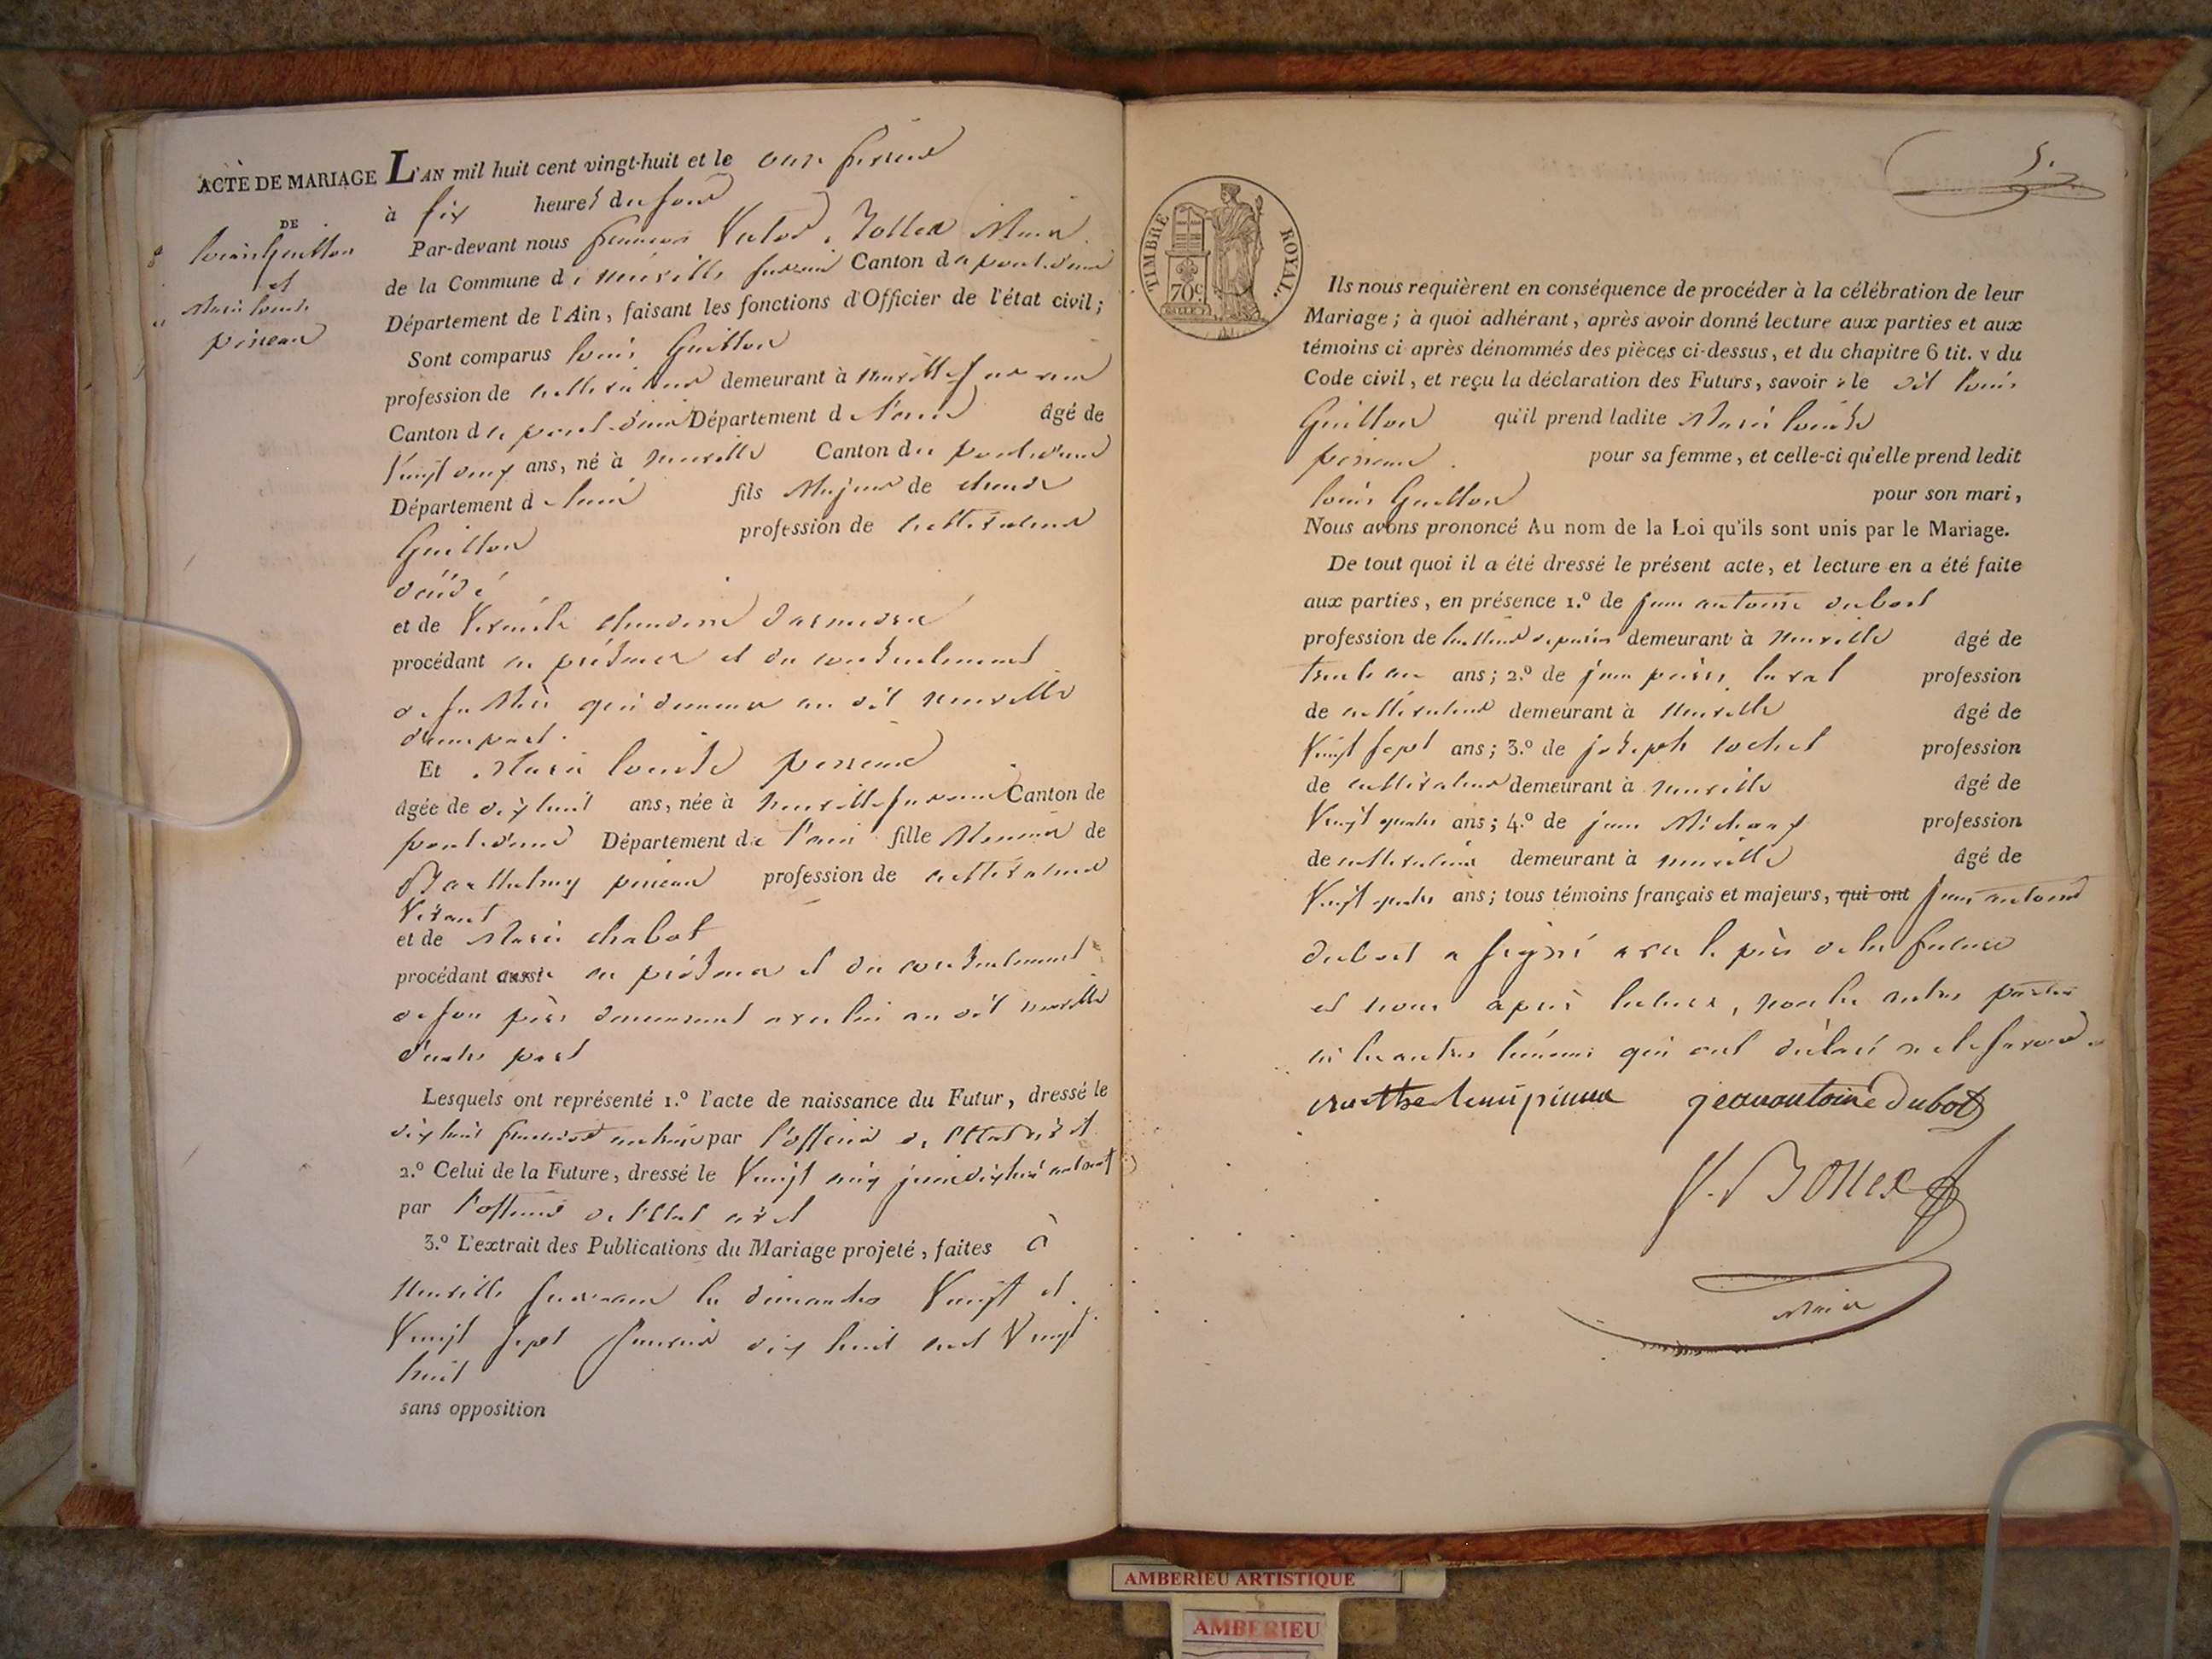 ACTE DE MARIAGE
DE
Louis Guillon
et
Marie Louise
L'AN mil huit cent vingt-huit et le onze fevrier
à six heures du soir
Par-devant nous francois Victor Bollex Maire
de la Commune de neuville sur ain Canton de pont d'ain
Département de l'Ain, faisant les fonctions d'Officier de l'état civil;
Sont comparus louis Guillon
profession de cultivateur demeurant à neuville sur ain
Canton de pont d'ain Département de l'ain âgé de
Vingt deux ans, né à neuville Canton du pont d'ain
Département de l'ain fils Majeur de claude
Guillon profession de cultivateur
décédé
et de claudine
procédant en présence et du consentement
de sa Mère qui demeure au dit neuville
d'une part.
Et Marie louise
âgée de dix huit ans, née à neuville sur ain Canton de
pont d'ain Département de l'ain fille Mineure de
Barthelemy profession de cultivateur
Vivant
et de Marie chabot
procédant aussi en présence et du consentement
de son père demeurant avec lui au dit neuville
d'autre part
Lesquels ont représenté 1.º l'acte de naissance du Futur, dressé le
par l'officier de l'Etat civil
2.º Celui de la Future, dressé le Vingt juin dix huit cent neuf
par l'officier de l'Etat civil
3.º L'extrait des Publications du Mariage projeté, faites à
Neuville sur ain les dimanches Vingt et
Vingt sept janvier dix huit cent Vingt
huit
sans opposition
5.
TIMBRE ROYAL.
70c
Ils nous requièrent en conséquence de procéder à la célébration de leur
Mariage; à quoi adhérant, après avoir donné lecture aux parties et aux
témoins ci après dénommés des pièces ci-dessus, et du chapitre 6 tit. v du
Code civil, et reçu la déclaration des Futurs, savoir : le dit louis
Guillon qu'il prend ladite Marie louise
pour sa femme, et celle-ci qu'elle prend ledit
louis Guillon pour son mari,
Nous avons prononcé Au nom de la Loi qu'ils sont unis par le Mariage.
De tout quoi il a été dressé le présent acte, et lecture en a été faite
aux parties, en présence 1.º de jean antoine dubost
profession de demeurant à neuville âgé de
trente ans; 2.º de jean pierre laval profession
de cultivateur demeurant à Neuville âgé de
Vingt sept ans; 3.º de joseph cochet profession
de cultivateur demeurant à neuville âgé de
Vingt quatre ans; 4.º de jean Michaux profession
de cultivateur demeurant à neuville âgé de
Vingt quatre ans; tous témoins français et majeurs, qui ont jean antoine
dubost a signé avec le père de la future
et nous après lecture, non les autres parties
ni les autres témoins qui ont déclaré ne le savoir.
jeanantoine Dubost
V. Bollex
Maire
AMBERIEU ARTISTIQUE
AMBERIEU